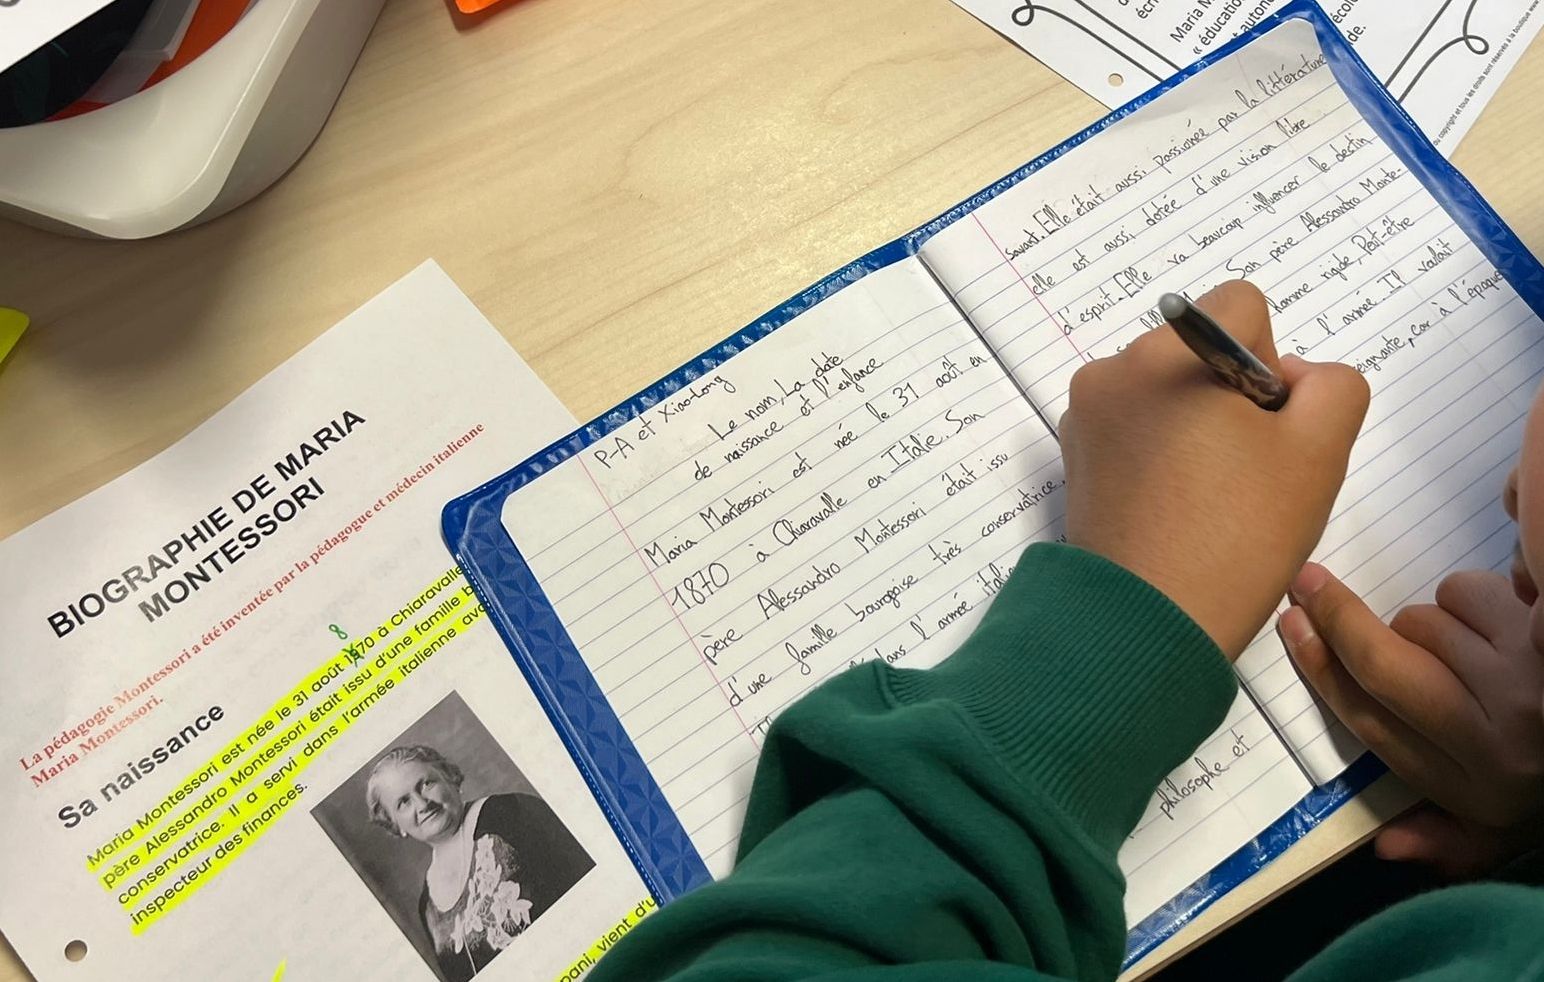 BIOGRAPHIE DE MARIA
MONTESSORI
La pédagogie Montessori a été inventée par la pédagogue et médecin italienne
Maria Montessori.
Sa naissance
Maria Montessori est née le 31 août 1870 à Chiaravalle
père Alessandro Montessori était issu d'une famille
conservatrice. Il a servi dans l'armée italienne
inspecteur des finances.
vient
P-A et Xiaolong
Le nom, La date
de naissance et l'enfance
Maria Montessori est née le 31 août en
1870 à Chiaravalle en Italie. Son
père Alessandro Montessori était issu
d'une famille bourgoise très conservatrice.
dans l'armé
philosophe et
savant. Elle était aussi passionée par la littérature
elle est aussi dotée d'une vision libre
d'esprit. Elle va beaucoup influencer le destin
Son père Alessandro Monte-
homme rigide, Peut-être
à l'armée. Il voulait
car à l'époque
Maria
« éducation